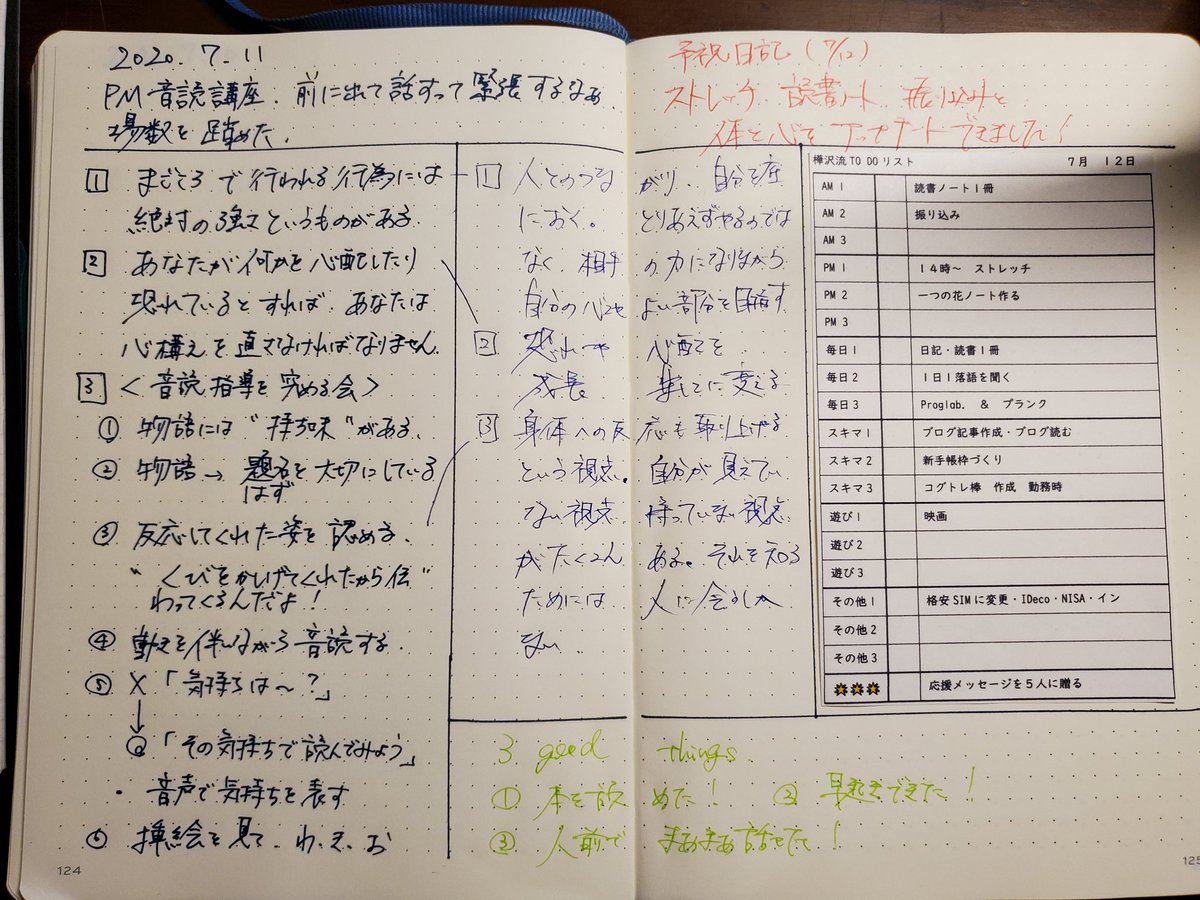 2020.7.11
PM 音読講座. 前に出て話すって緊張するなあ
場数を踏めた.
1 まごころで行われる行為には
絶対の強さというものがある.
2 あなたが何かを心配したり
恐れているとすれば、あなたは
心構えを直さなければなりません.
3 <音読指導を究める会>
① 物語には"持ち味"がある.
② 物語→題名を大切にしている
はず
③ 反応してくれた姿を認める.
"くびをかしげてくれたから伝"
わってくるんだよ!
④ 動きを伴いながら音読する.
⑤ ×「気持ちは〜?」
↓
◎「その気持ちで読んでみよう」
・音声で気持ちを表す
⑥ 挿絵を見て、わ・き・お
124
1 人とのつながり、自分を座
におく。とりあえずやるのでは
なく、相手の力になりながら
自分の心もよい部分を目指す
2 恐れや心配を
成長 楽しさに変える
3 身体への反応も取り上げる
という視点. 自分が見えてい
ない視点、持っていない視点
がたくさんある。それを知る
ためには人に会うしか
ない.
予祝日記(7/12)
ストレッチ、読書ノート、振り込みと
体と心をアップデートできました!
樺沢流TO DOリスト 7月 12日
AM1 読書ノート1冊
AM2 振り込み
AM3
PM1 14時〜 ストレッチ
PM2 一つの花ノート作る
PM3
毎日1 日記・読書1冊
毎日2 1日1落語を聞く
毎日3 Proglab. & プランク
スキマ1 ブログ記事作成・ブログ読む
スキマ2 新手帳枠づくり
スキマ3 コグトレ棒 作成 勤務時
遊び1 映画
遊び2
遊び3
その他1 格安SIMに変更・IDeco・NISA・イン
その他2
その他3
応援メッセージを5人に贈る
3 good things.
① 本を読めた! ② 早起きできた!
③ 人前でまあまあ話せた!
125